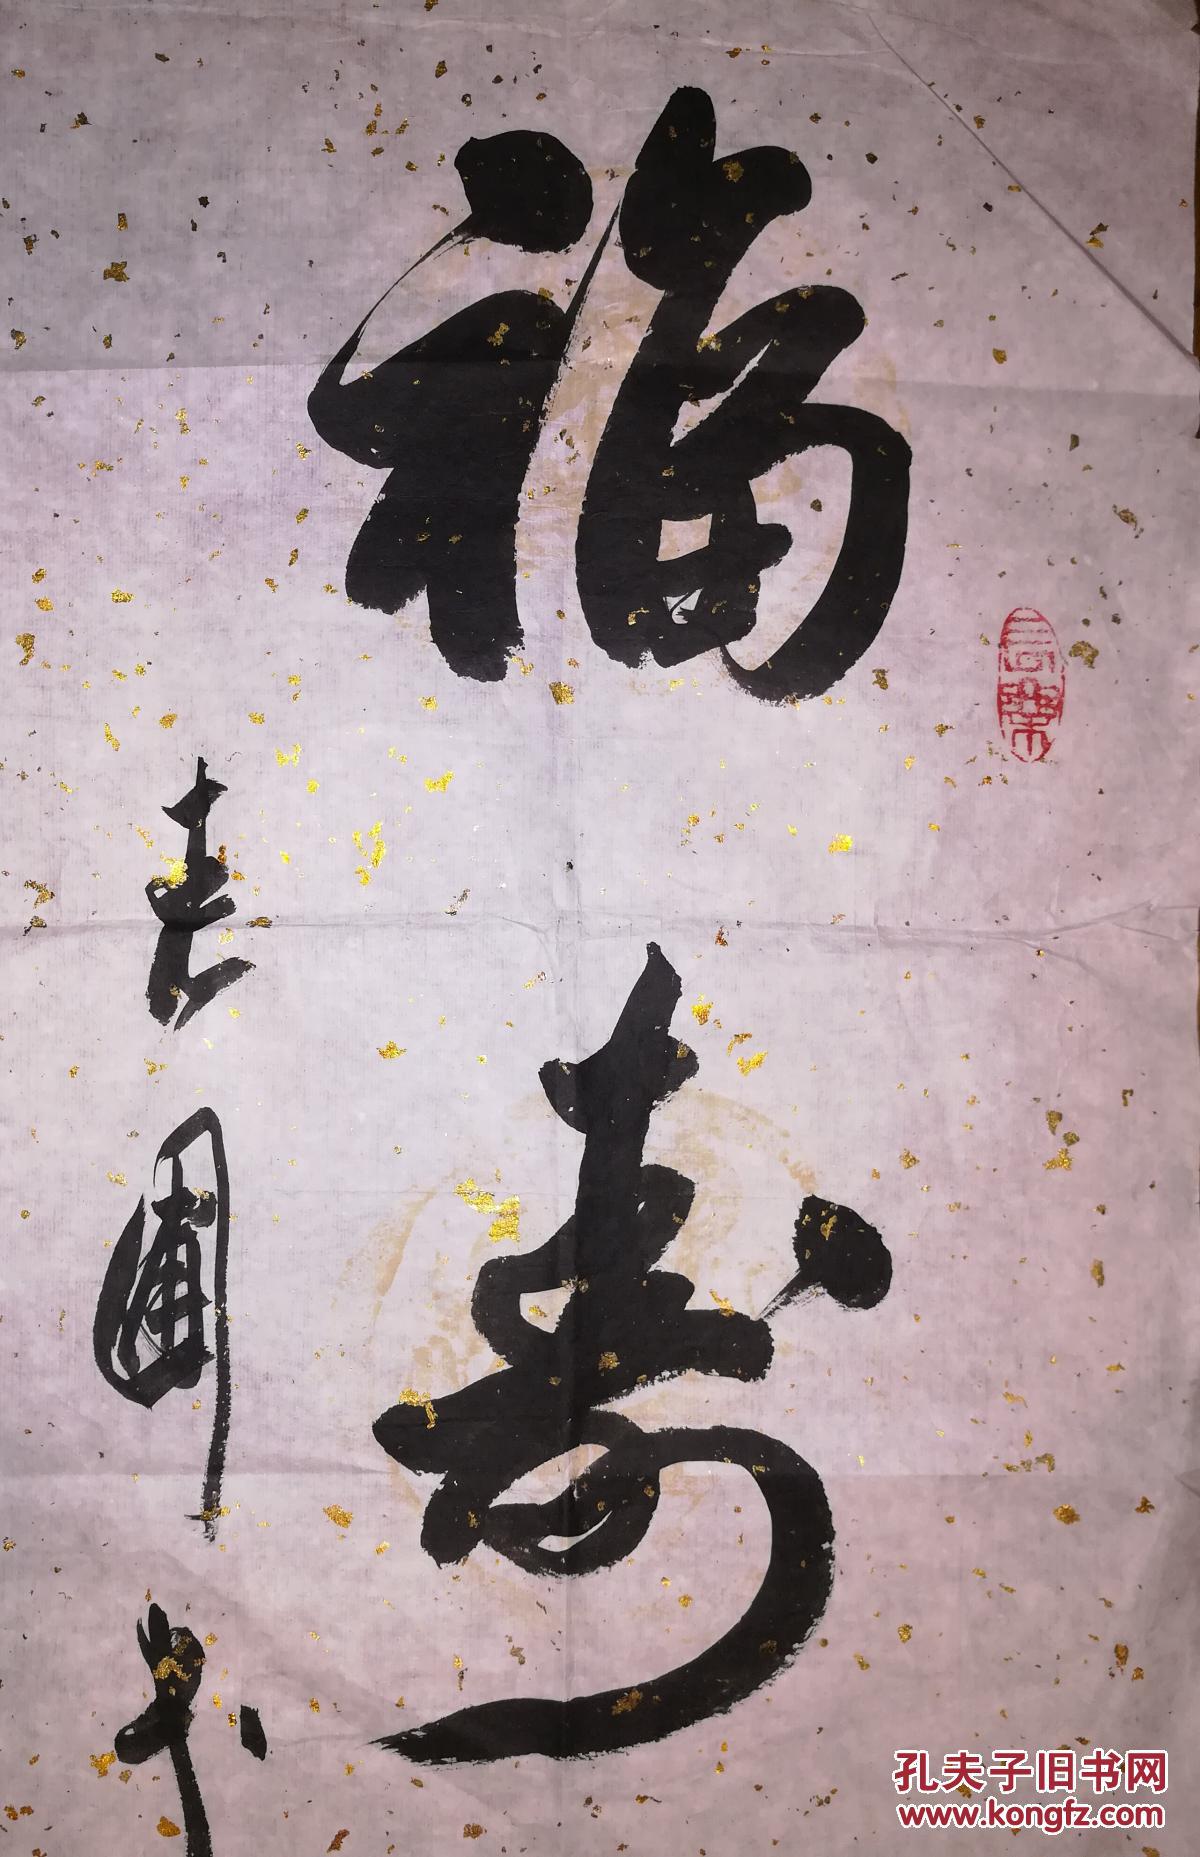 福寿
春圃书
孔夫子旧书网
www.kongfz.com